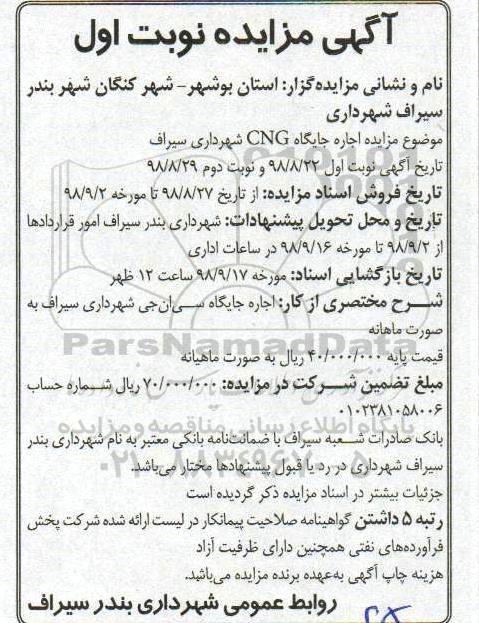 آگهی مزایده نوبت اول
نام و نشانی مزایده‌گزار: استان بوشهر- شهر کنگان شهر بندر
سیراف شهرداری
موضوع مزایده اجاره جایگاه CNG شهرداری سیراف
تاریخ آگهی نوبت اول ۹۸/۸/۲۲ و نوبت دوم ۹۸/۸/۲۹
تاریخ فروش اسناد مزایده: از تاریخ ۹۸/۸/۲۷ تا مورخه ۹۸/۹/۲
تاریخ و محل تحویل پیشنهادات: شهرداری بندر سیراف امور قراردادها
از ۹۸/۹/۲ تا مورخه ۹۸/۹/۱۶ در ساعات اداری
تاریخ بازگشایی اسناد: مورخه ۹۸/۹/۱۷ ساعت ۱۲ ظهر
شرح مختصری از کار: اجاره جایگاه سی‌ان‌جی شهرداری سیراف به
صورت ماهانه
قیمت پایه ۴۰/۰۰۰/۰۰۰ ریال به صورت ماهیانه
مبلغ تضمین شرکت در مزایده: ۷۰/۰۰۰/۰۰۰ ریال شماره حساب
۰۱۰۲۳۸۱۰۵۸۰۰۶
بانک صادرات شعبه سیراف با ضمانت‌نامه بانکی معتبر به نام شهرداری بندر
سیراف شهرداری در رد یا قبول پیشنهادها مختار می‌باشد.
جزئیات بیشتر در اسناد مزایده ذکر گردیده است
رتبه ۵ داشتن گواهینامه صلاحیت پیمانکار در لیست ارائه شده شرکت پخش
فرآورده‌های نفتی همچنین دارای ظرفیت آزاد
هزینه چاپ آگهی به‌عهده برنده مزایده می‌باشد.
روابط عمومی شهرداری بندر سیراف
ParsNamadData
پایگاه اطلاع رسانی مناقصه و مزایده